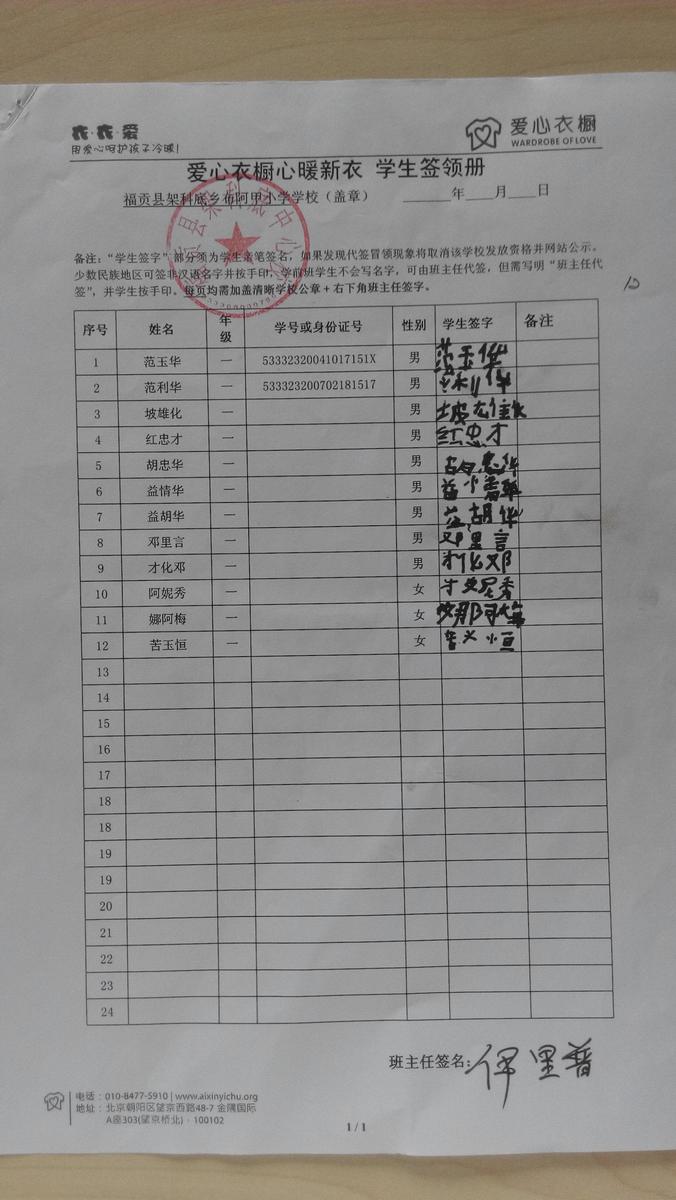 衣·衣·爱
用爱心呵护孩子冷暖!
爱心衣橱
WARDROBE OF LOVE
爱心衣橱心暖新衣 学生签领册
福贡县架科底乡布阿甲小学学校（盖章） 年 月 日
备注：“学生签字”部分须为学生亲笔签名，如果发现代签冒领现象将取消该学校发放资格并网站公示。
少数民族地区可签非汉语名字并按手印，学前班学生不会写名字，可由班主任代签，但需写明“班主任代
签”，并学生按手印。每页均需加盖清晰学校公章+右下角班主任签字。
序号 姓名 年级 学号或身份证号 性别 学生签字 备注
1 范玉华 一 53332320041017151X 男 范玉华
2 范利华 一 533323200702181517 男
3 坡雄化 一 男
4 红忠才 一 男 红忠才
5 胡忠华 一 男 胡忠华
6 益情华 一 男
7 益胡华 一 男 益胡华
8 邓里言 一 男 邓里言
9 才化邓 一 男 才化邓
10 阿妮秀 一 女
11 娜阿梅 一 女
12 苦玉恒 一 女
13
14
15
16
17
18
18
19
19
20
21
22
23
24
班主任签名：伊里普
电话：010-8477-5910 | www.aixinyichu.org
地址：北京朝阳区望京西路48-7 金隅国际
A座303(望京桥北)·100102
1 / 1